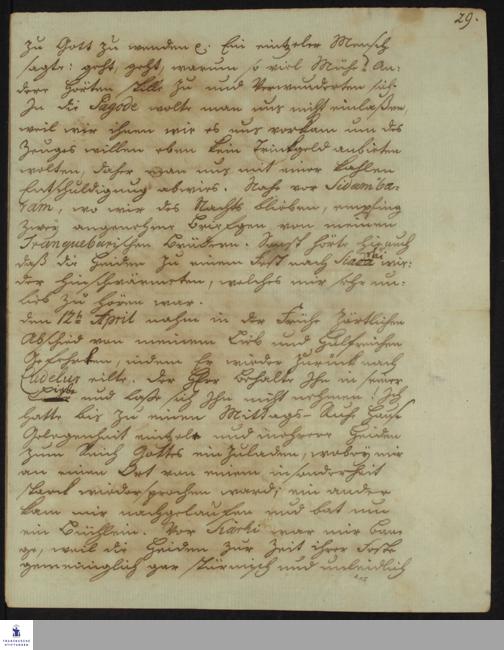 29.
zu Gott zu wenden p. Ein eintzeler Mensch
sagte: geht, geht, warum so viel Mühe? An-
dere hörten stille zu und verwunderten sich.
In die Pagode wolte man uns nicht einlaßen,
weil wir ihnen wie es uns vorkam um des
Zeuges willen eben kein Trinkgeld anbieten
wolten, daher man uns mit einer kahlen
Entschuldigung abwies. Nahe vor Sidamba-
ram, wo wir des Nachts blieben, empfing
zwey angenehme Briefgen von meinen
Tranquebarischen Brüdern. Sonst hörte hier auch
daß die Heiden zu einem Fest nach wie-
der hinschwärmeten, welches mir sehr un-
lieb zu hören war.
den 12ten April nahm in der Frühe zärtlichen
Abschied von meinem lieb und hülfreichen
Gefehrten, indem Er wieder zurück nach
Cudelur eilte. Der HErr behalte Ihn in seiner
Liebe und laße sich Ihn nicht nehmen! Ich
hatte bis zu einem Mittags-Ruhe Hause
Gelegenheit eintzele und mehrere Heiden
zum Reich Gottes einzuladen, wobey mir
an einem Ort von einem insonderheit
starck wiedersprochen ward; ein ander
kam mir nachgelaufen und bat um
ein Büchlein. Vor war mir ban-
ge, weil die Heiden zur Zeit ihrer Feste
gemeiniglich gar stürmisch und unleidlich
FRANCKESCHE
STIFTUNGEN